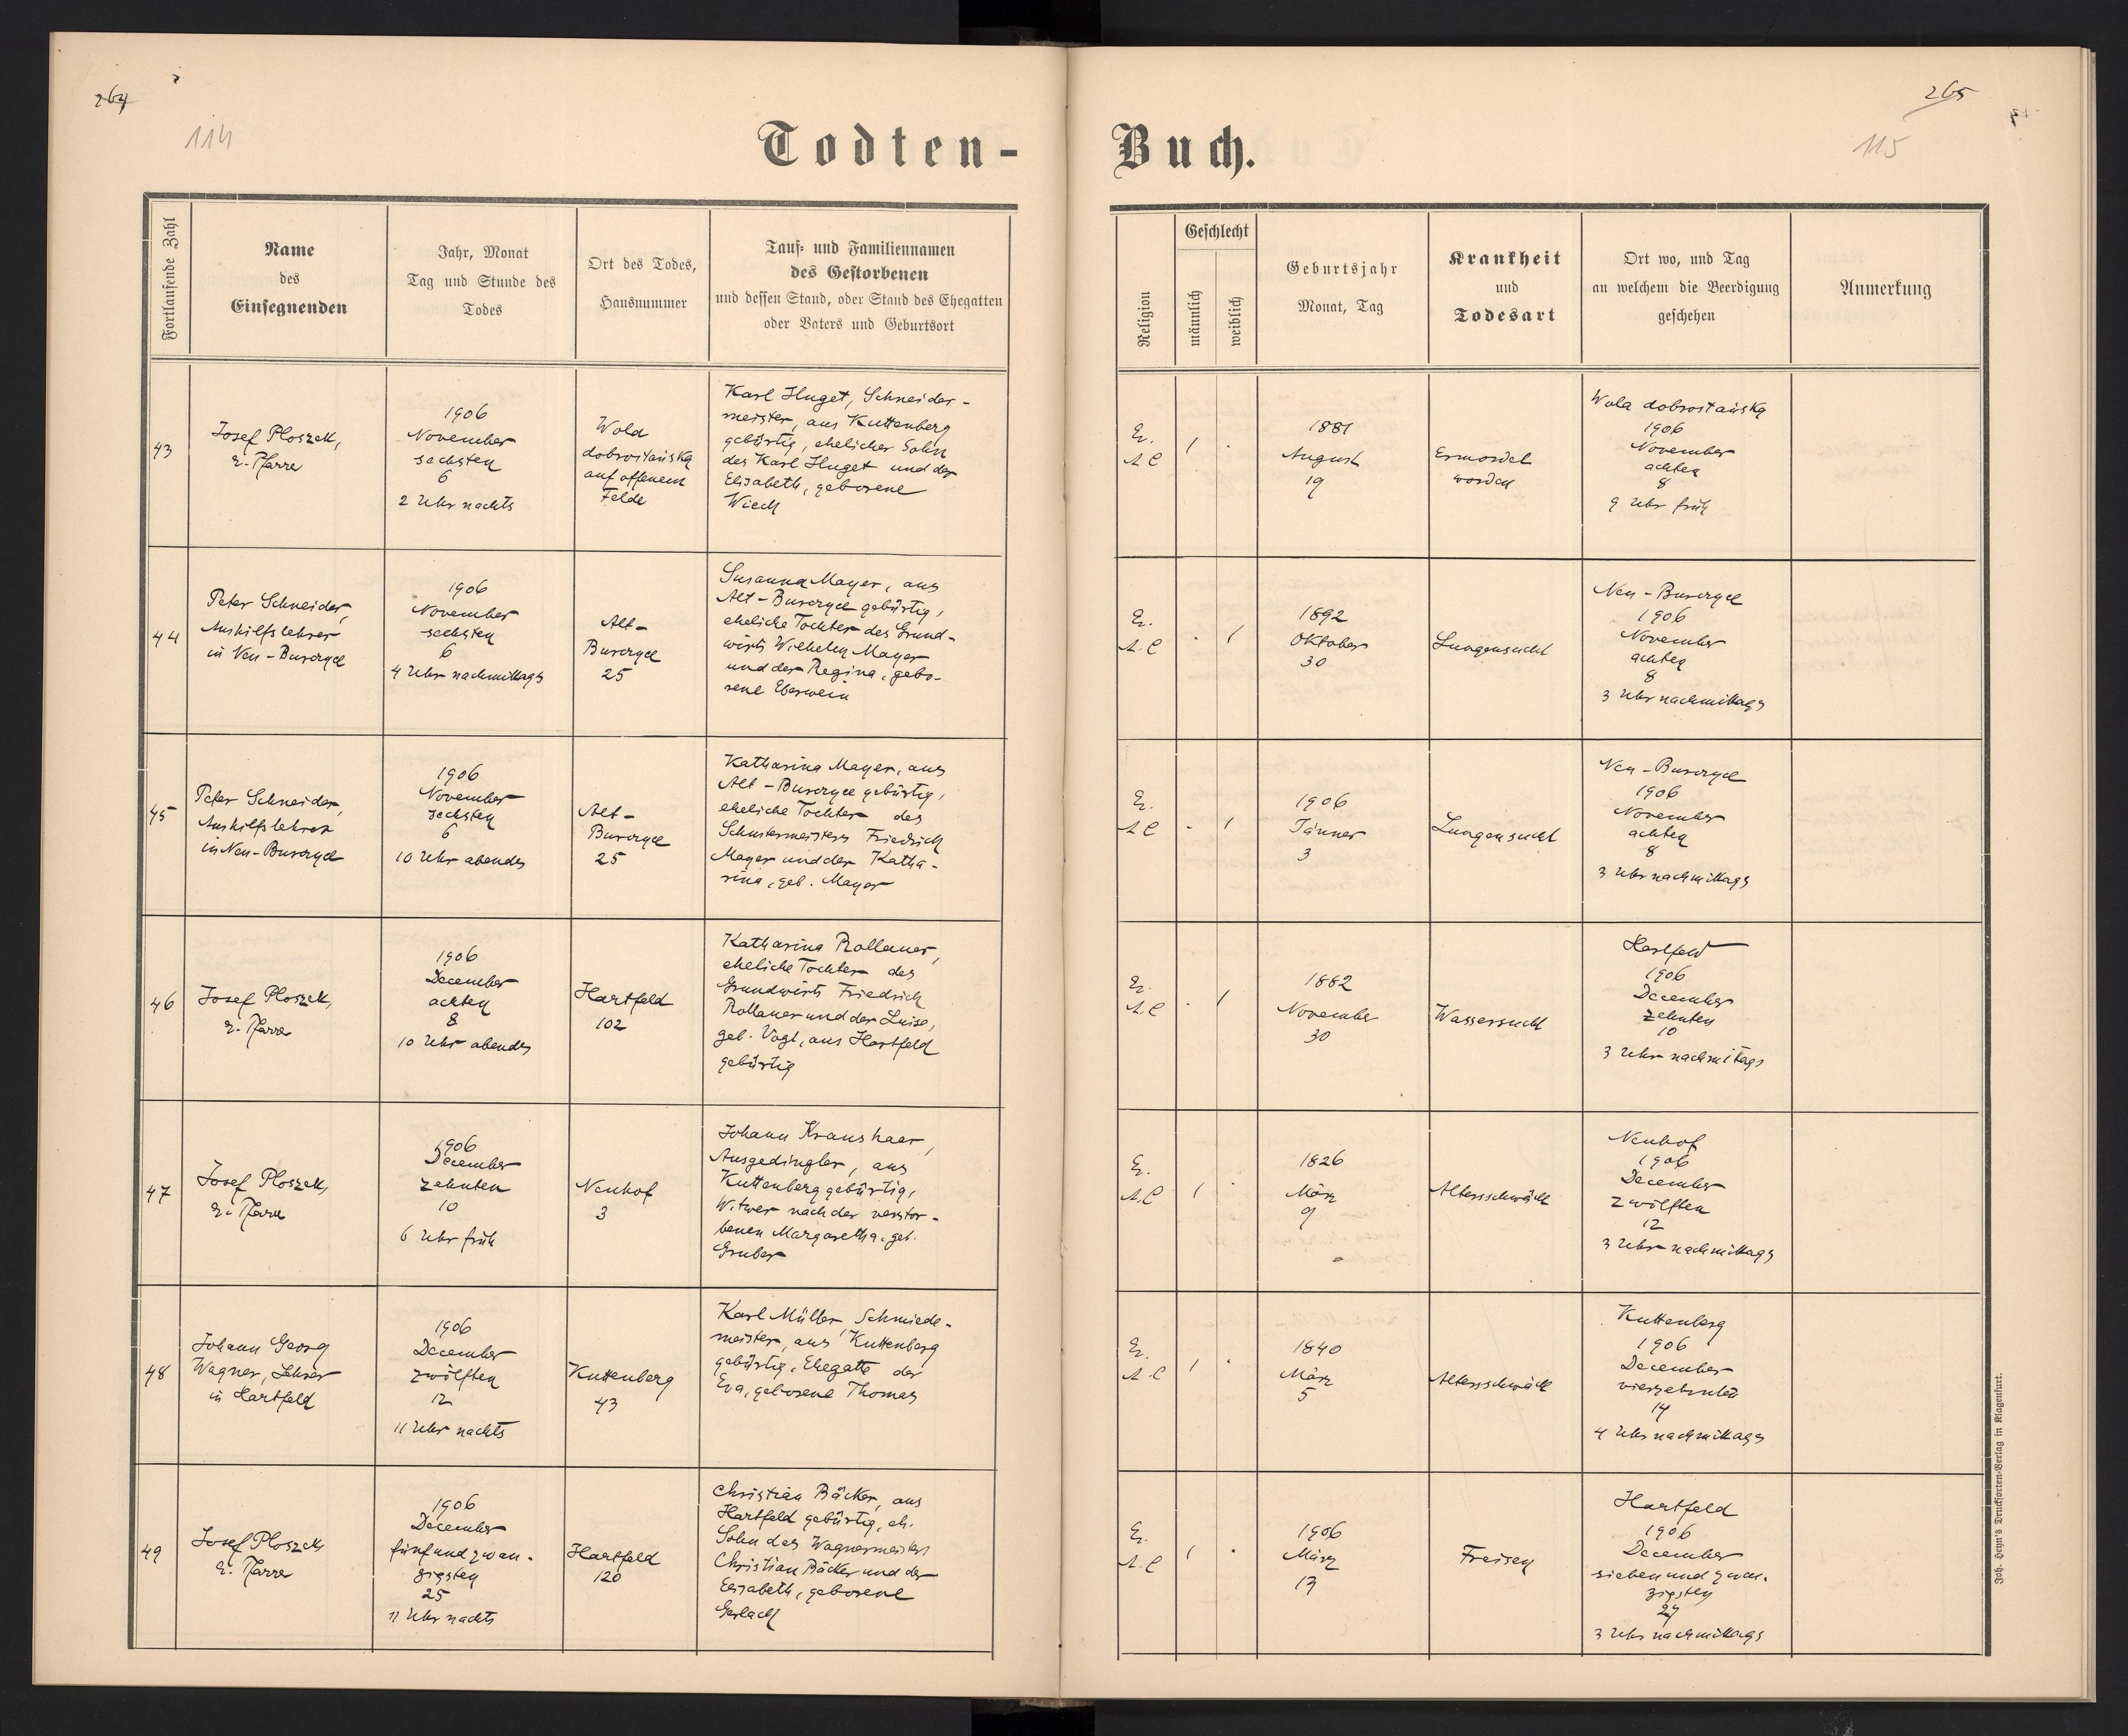 264
265
114
115
Todten-
Buch.
Fortlaufende Zahl
Name
des
Einsegnenden
Jahr, Monat
Tag und Stunde des
Todes
Ort des Todes,
Hausnummer
Tauf- und Familiennamen
des Gestorbenen
und dessen Stand, oder Stand des Ehegatten
oder Vaters und Geburtsort
Religion
Geschlecht
männlich
weiblich
Geburtsjahr
Monat, Tag
Krankheit
und
Todesart
Ort wo, und Tag
an welchem die Beerdigung
geschehen
Anmerkung
43
Josef Ploszek,
e. Pfarrer
1906
November
sechsten
6
2 Uhr nachts
Wola
dobrostańska
auf offenem
Felde
Karl Huget, Schneider-
meister, aus Kuttenberg
gebürtig, ehelicher Sohn
des Karl Huget und der
Elisabeth, geborene
Wiech
Ev.
A C
1881
August
19
Ermordet
worden
Wola dobrostańska
1906
November
achten
8
9 Uhr früh
44
Peter Schneider,
Aushilfslehrer
in Neu-Burczyce
1906
November
sechsten
6
4 Uhr nachmittags
Alt-
Burczyce
25
Susanna Mayer, aus
Alt-Burczyce gebürtig,
eheliche Tochter des Grund-
wirts Wilhelm Mayer
und der Regina, gebo-
rene Eberwein
Ev.
A. C
1892
Oktober
30
Lungensucht
Neu-Burczyce
1906
November
achten
8
3 Uhr nachmittags
45
Peter Schneider,
Aushilfslehrer
in Neu-Burczyce
1906
November
sechsten
6
10 Uhr abends
Alt-
Burczyce
25
Katharina Mayer, aus
Alt-Burczyce gebürtig,
eheliche Tochter des
Schustermeisters Friedrich
Mayer und der Katha-
rina, geb. Mayer
Ev.
A C
1906
Jänner
3
Lungensucht
Neu-Burczyce
1906
November
achten
8
3 Uhr nachmittags
46
Josef Ploszek,
e. Pfarrer
1906
December
achten
8
10 Uhr abends
Hartfeld
102
Katharina Rollauer,
eheliche Tochter des
Grundwirts Friedrich
Rollauer und der Luise,
geb. Vogl, aus Hartfeld
gebürtig
Ev.
A C
1882
November
30
Wassersucht
Hartfeld
1906
December
zehnten
10
3 Uhr nachmitags
47
Josef Ploszek,
e. Pfarrer
1906
December
zehnten
10
6 Uhr früh
Neuhof
3
Johann Kraushaar,
Ausgedingler, aus
Kuttenberg gebürtig,
Witwer nach der verstor-
benen Margaretha, geb.
Gruber
Ev.
A. C
1826
März
9
Altersschwäche
Neuhof
1906
December
zwölften
12
3 Uhr nachmittags
48
Johann Georg
Wagner, Lehrer
in Hartfeld
1906
December
zwölften
12
11 Uhr nachts
Kuttenberg
43
Karl Müller, Schmiede-
meister, aus Kuttenberg
gebürtig, Ehegatte der
Eva, geborene Thomas
Ev.
A. C
1840
März
5
Altersschwäche
Kuttenberg
1906
December
vierzehnten
14
4 Uhr nachmittags
49
Josef Ploszek,
e. Pfarrer
1906
December
fünfundzwan-
zigsten
25
11 Uhr nachts
Hartfeld
120
Christian Bäcker, aus
Hartfeld gebürtig, eh.
Sohn des Wagnermeisters
Christian Bäcker und der
Elisabeth, geborene
Gerlach
Ev.
A. C
1906
März
Fraisen
Hartfeld
1906
December
siebenundzwan-
zigsten
27
3 Uhr nachmittags
Joh. Heyn's Drucksorten-Verlag in Klagenfurt.